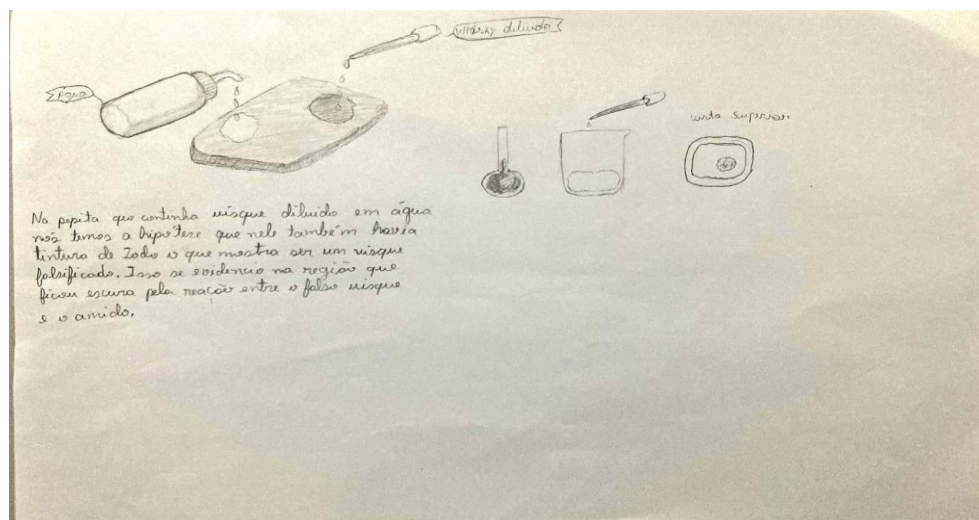 whisky diluido
Água
vista superior
Na pepita que continha uisque diluido em água
nós temos a hipótese que nele também havia
tintura de Iodo o que mostra ser um uisque
falsificado. Isso se evidencio na região que
ficou escura pela reação entre o falso uisque
e o amido.